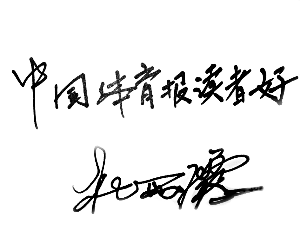 中国体育报读者好